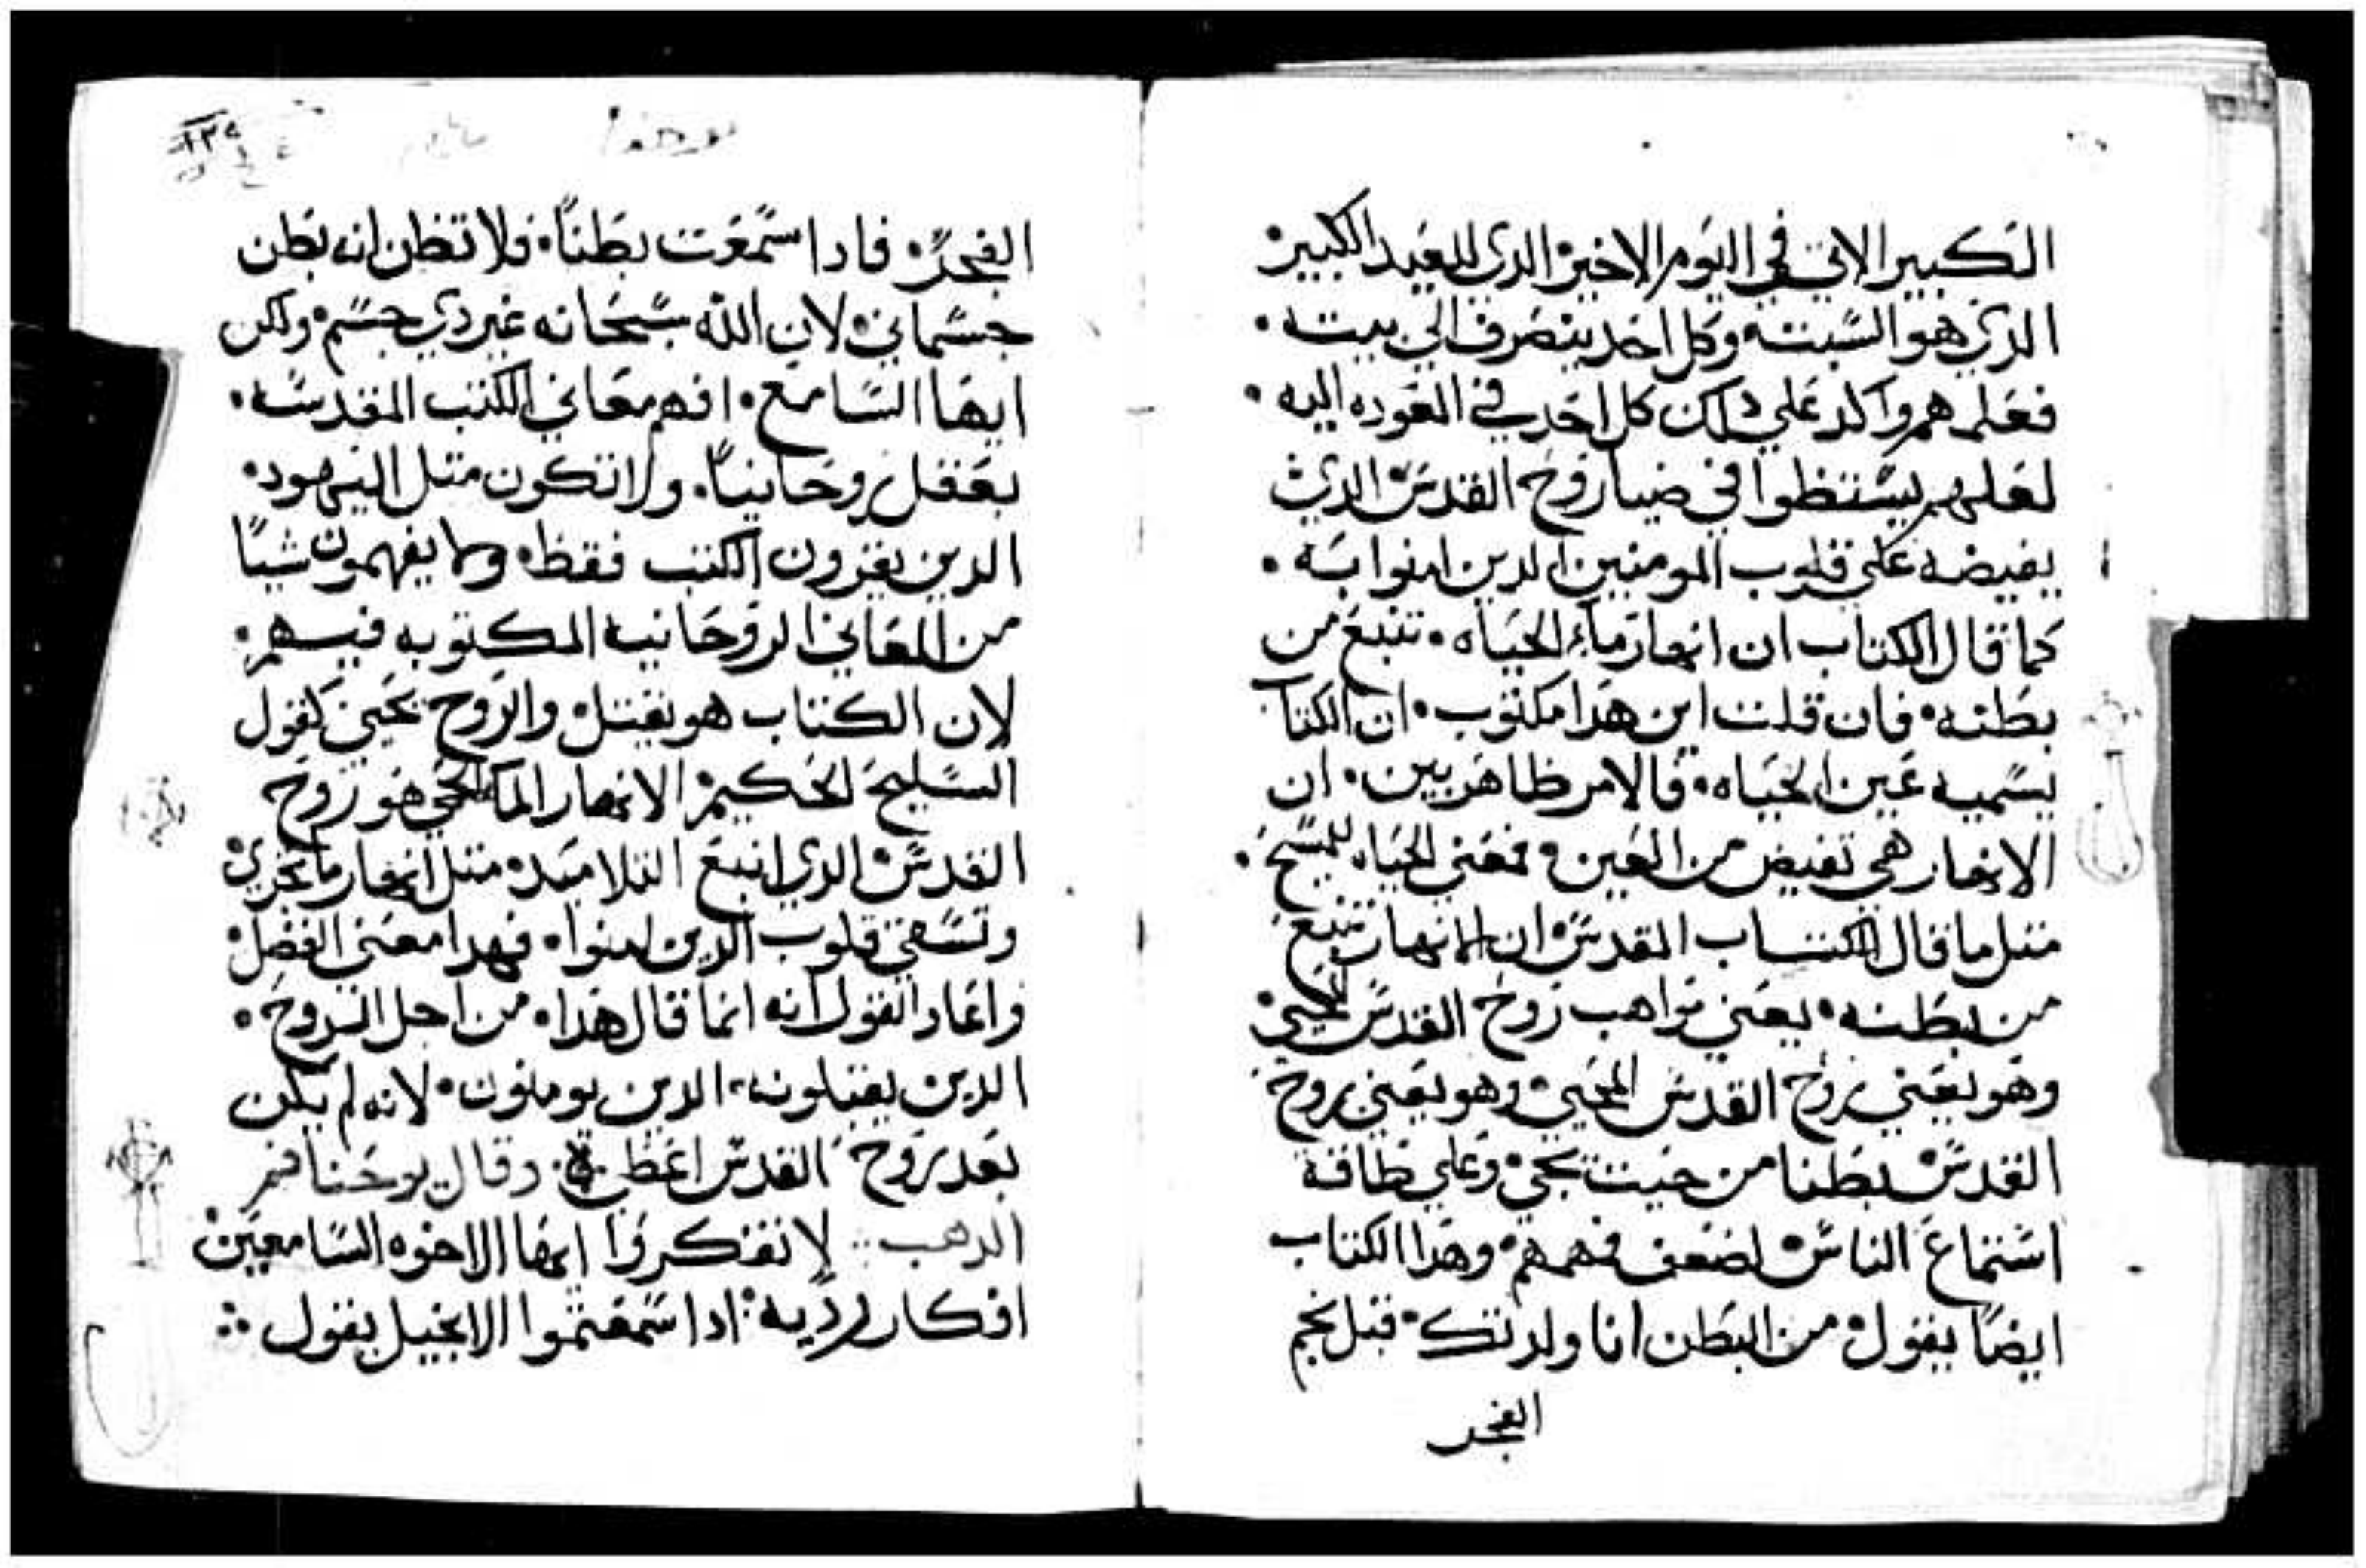 الكبير الاتي في اليوم الاخير الدي للعيد الكبير
الدي هو السبته وكل احد ينصرف الي بيته
فعلمهم واكد علي دلك كل احد في العوده اليه
لعلهم يستنظوا في ضيا روح القدس الدي
يفيضه علي قلوب المومنين الدين امنوا به
كما قال الكتاب ان انهار ماء الحياه تنبع من
بطنه فان قلت اين هدا مكتوب ان الكتاب
يسميه عين الحياه فالامر ظاهر بين ان
الانهار هي تفيض من العين فمعني الحياه للمسيح
متل ما قال الكتاب المقدس ان الانهار تنبع
من بطنه يعني مواهب روح القدس المحيي
وهو يعني بروح القدس المحيي وهو يعني بروح
القدس بطنا من حيت يجي وعلي طاقة
استماع الناس لضعف فهمهم وهدا الكتاب
ايضا يقول من البطن انا ولدتك قبل نجم
الفجر
يوحنا
١٣٤
الفجر فادا سمعت بطنا فلا تظن انه بطن
جسماني لان الله سبحانه غير دي جسم ولكن
ايها السامع افهم معاني الكتب المقدسه
بعقل روحانيا ولا تكون متل اليهود
الدين يقرون الكتب فقط وما يفهمون شيا
من المعاني الروحانيه المكتوبه فيهم
لان الكتاب هو يقتل والروح تحيي كقول
السليح الحكيم الانهار الما الحي هو روح
القدس الدي انبع التلاميد متل انهار ما تجري
وتسقي قلوب الدين امنوا فهدا معني الفصل
واعاد القول انه انما قال هدا من اجل الروح
الدين يقبلونه الدين يومنون لانه لم يكن
بعد روح القدس اعطي وقال يوحنا فم
الدهب لا تفتكروا ايها الاخوه السامعين
افكار رديه ادا سمعتموا الانجيل يقول